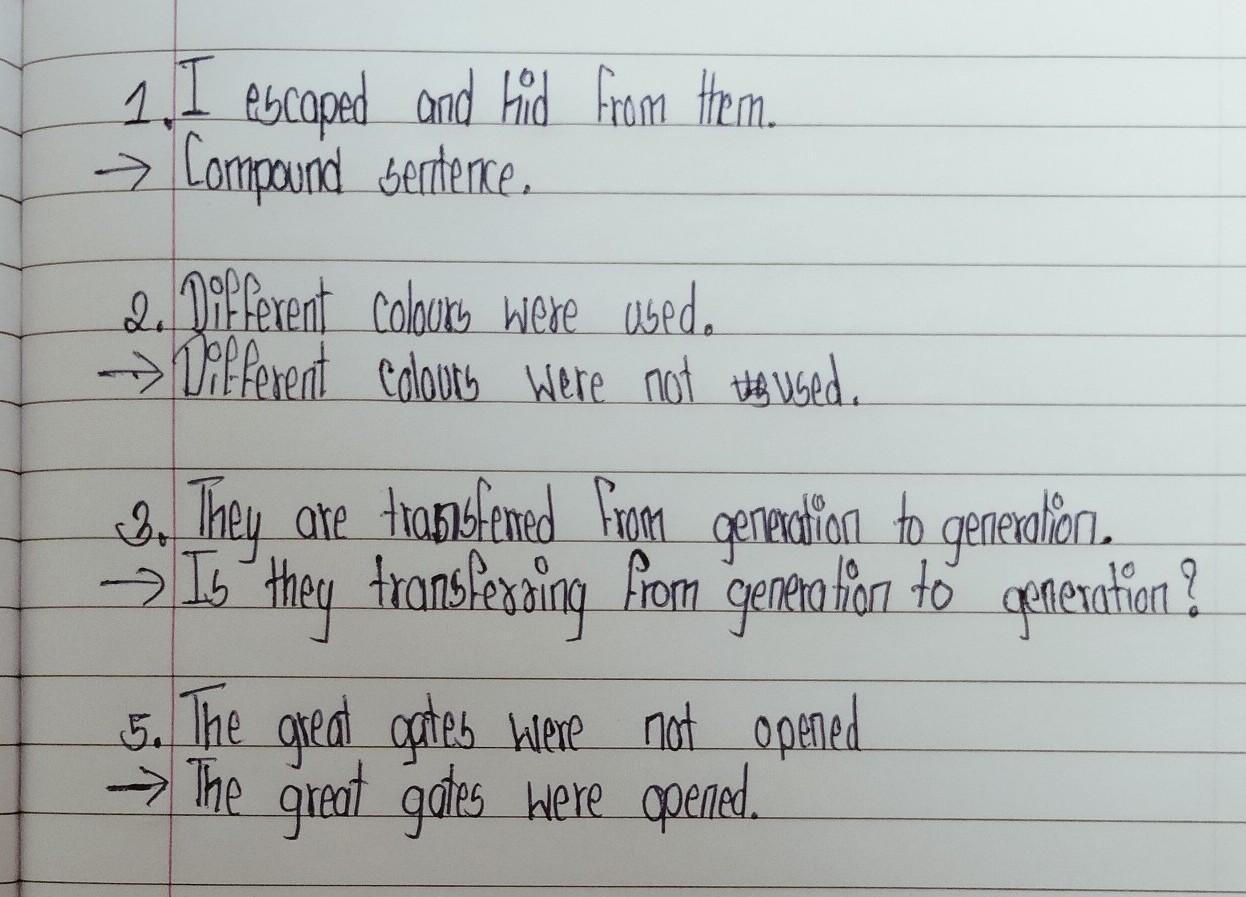 1. I escaped and hid from them.
→ Compound sentence.
2. Different colours were used.
→ Different colours were not used.
3. They are transferred from generation to generation.
→ Is they transferring from generation to generation?
5. The great gates were not opened
→ The great gates were opened.